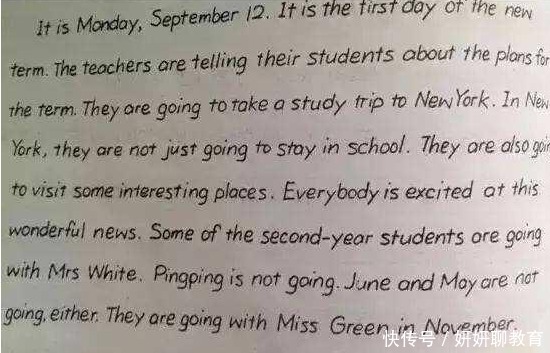 It is Monday, September 12. It is the first day of the new
term. The teachers are telling their students about the plans for
the term. They are going to take a study trip to New York. In New
York, they are not just going to stay in school. They are also goin
to visit some interesting places. Everybody is excited at this
wonderful news. Some of the second-year students are going
with Mrs White. Pingping is not going. June and May are not
going, either. They are going with Miss Green in November.
快传号 / 妍妍聊教育